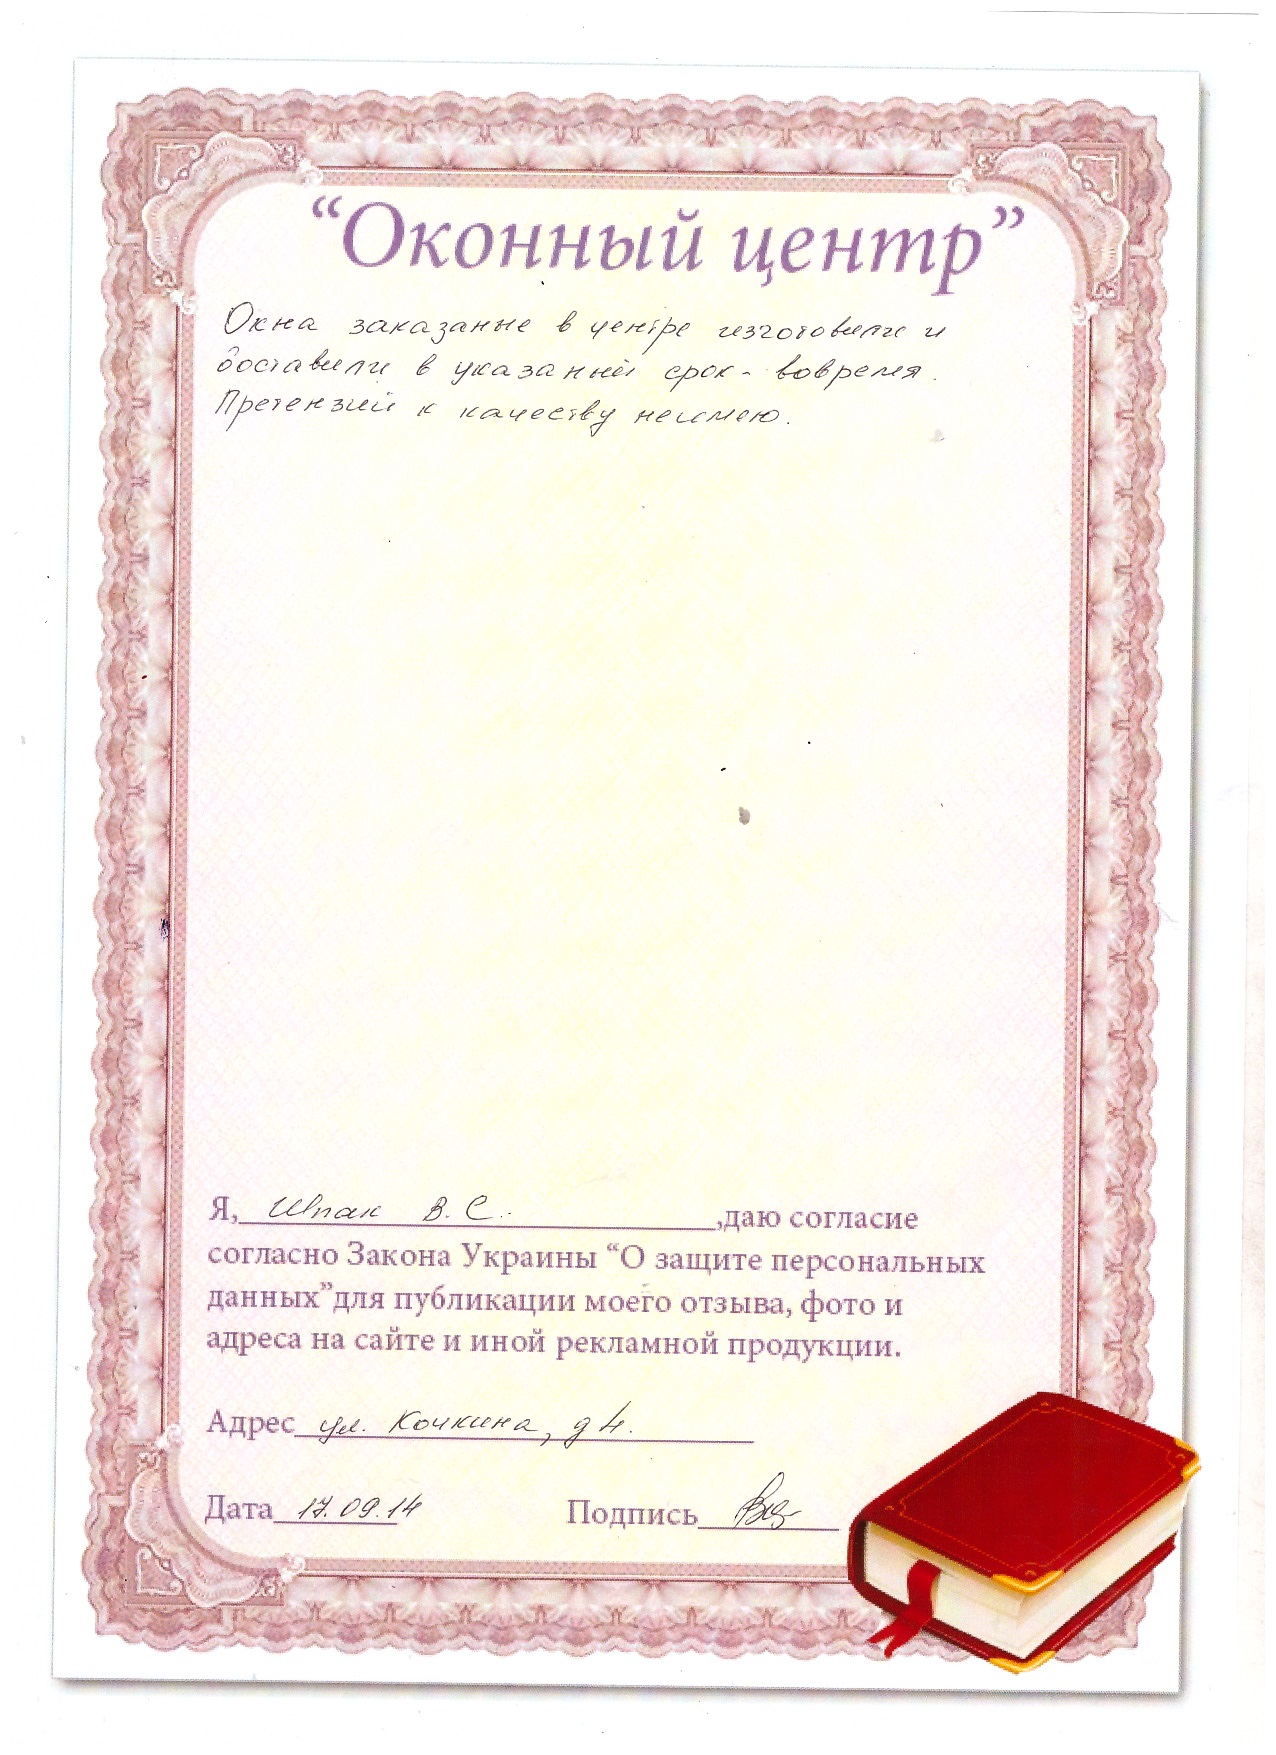 “Оконный центр”
Окна заказаные в центре изготовили и
доставили в указаный срок - вовремя.
Претензий к качеству неимею.
Я, Шпак В. С. ,даю согласие
согласно Закона Украины “О защите персональных
данных”для публикации моего отзыва, фото и
адреса на сайте и иной рекламной продукции.
Адрес ул. Кочкина, д 4.
Дата 17.09.14 Подпись